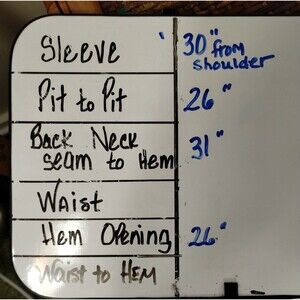 Sleeve 30" from
shoulder
Pit to Pit 26"
Back Neck
seam to Hem 31"
Waist
Hem Opening 26"
Waist to Hem